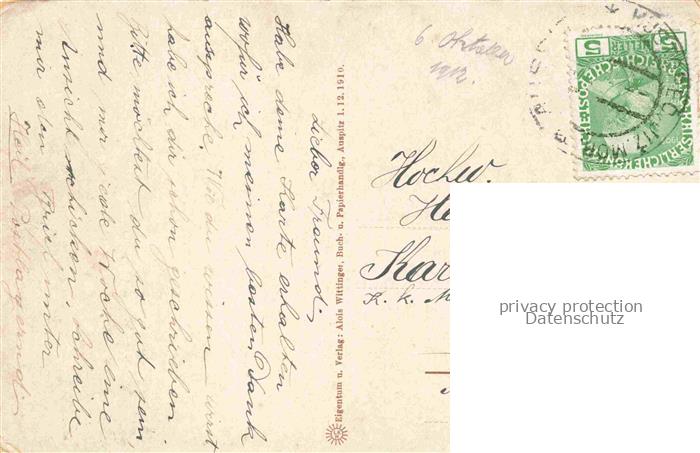 Lieber Freund!
Habe deine Karte erhalten
wofür ich meinen besten Dank
ausspreche. Wie du wissen wirst
habe ich dir schon geschrieben
Bitte möchtest du so gut sein,
und mir jede Woche eine
Ansicht schicken. Schreibe
mir den Titel unter
Heil Postlagernd
Eigentum u. Verlag: Alois Wittinger, Buch- u. Papierhandlg., Auspitz 1.12.1910.
6. Oktober
1912.
5 HELLER 5
KAISERLICHE KÖNIGL
ÖSTERREICHISCHE POST
Hochw.
He
Kar
K. k. M
privacy protection
Datenschutz